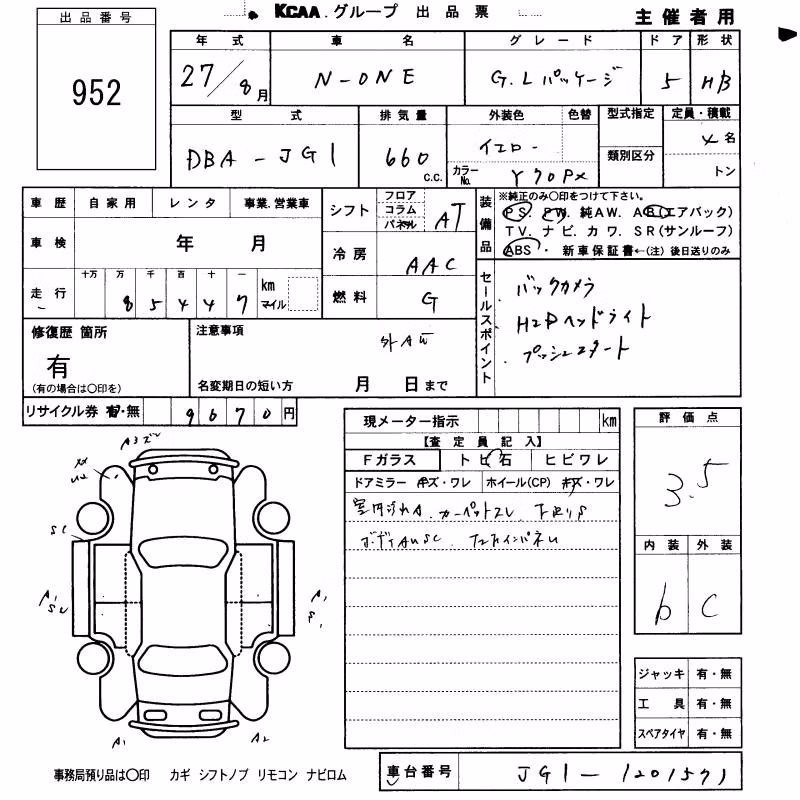 KCAA.グループ 出品票
主催者用
出品番号
952
年式 車名 グレード ドア 形状
27/8月 N-ONE G.Lパッケージ 5 HB
型式 排気量 外装色 色替 型式指定 定員・積載
DBA-JG1 660 c.c. イエロー 類別区分 4名
カラーNo. Y70PX トン
車歴 自家用 レンタ 事業.営業車
シフト フロア コラム パネル AT
装備品
※純正のみ〇印をつけて下さい。
PS. PW. 純AW. AB(エアバック)
TV. ナビ. カワ. SR(サンルーフ)
ABS ・ 新車保証書←(注) 後日送りのみ
車検 年 月
冷房 AAC
走行 十万 万 千 百 十 一 km マイル
8 5 4 4 7
燃料 G
セールスポイント
バックカメラ
HIDヘッドライト
プッシュスタート
修復歴 箇所
有
(有の場合は〇印を)
注意事項
名変期日の短い方 月 日まで
リサイクル券 有・無 9670円
現メーター指示 km
【査定員記入】
Fガラス トビ石 ヒビワレ
ドアミラー キズ・ワレ ホイール(CP) キズ・ワレ
評価点
3.5
内装 外装
b C
A3
A1
A1
A1 A2
ジャッキ 有・無
工具 有・無
スペアタイヤ 有・無
事務局預り品は〇印 カギ シフトノブ リモコン ナビロム
車台番号 JG1-1201571